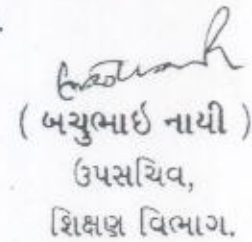 ( બચુભાઇ નાયી )
ઉપસચિવ,
શિક્ષણ વિભાગ.